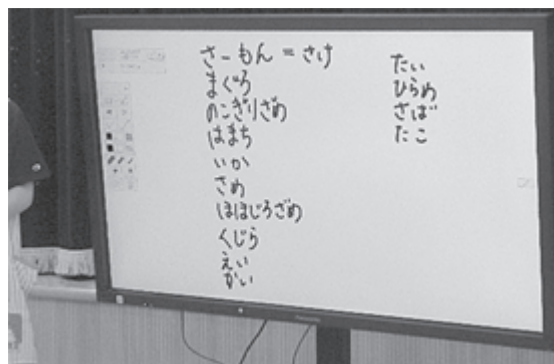 さーもん＝さけ
まぐろ
のこぎりざめ
はまち
いか
さめ
ほほじろざめ
くじら
えい
かい
たい
ひらめ
さば
たこ
Panasonic